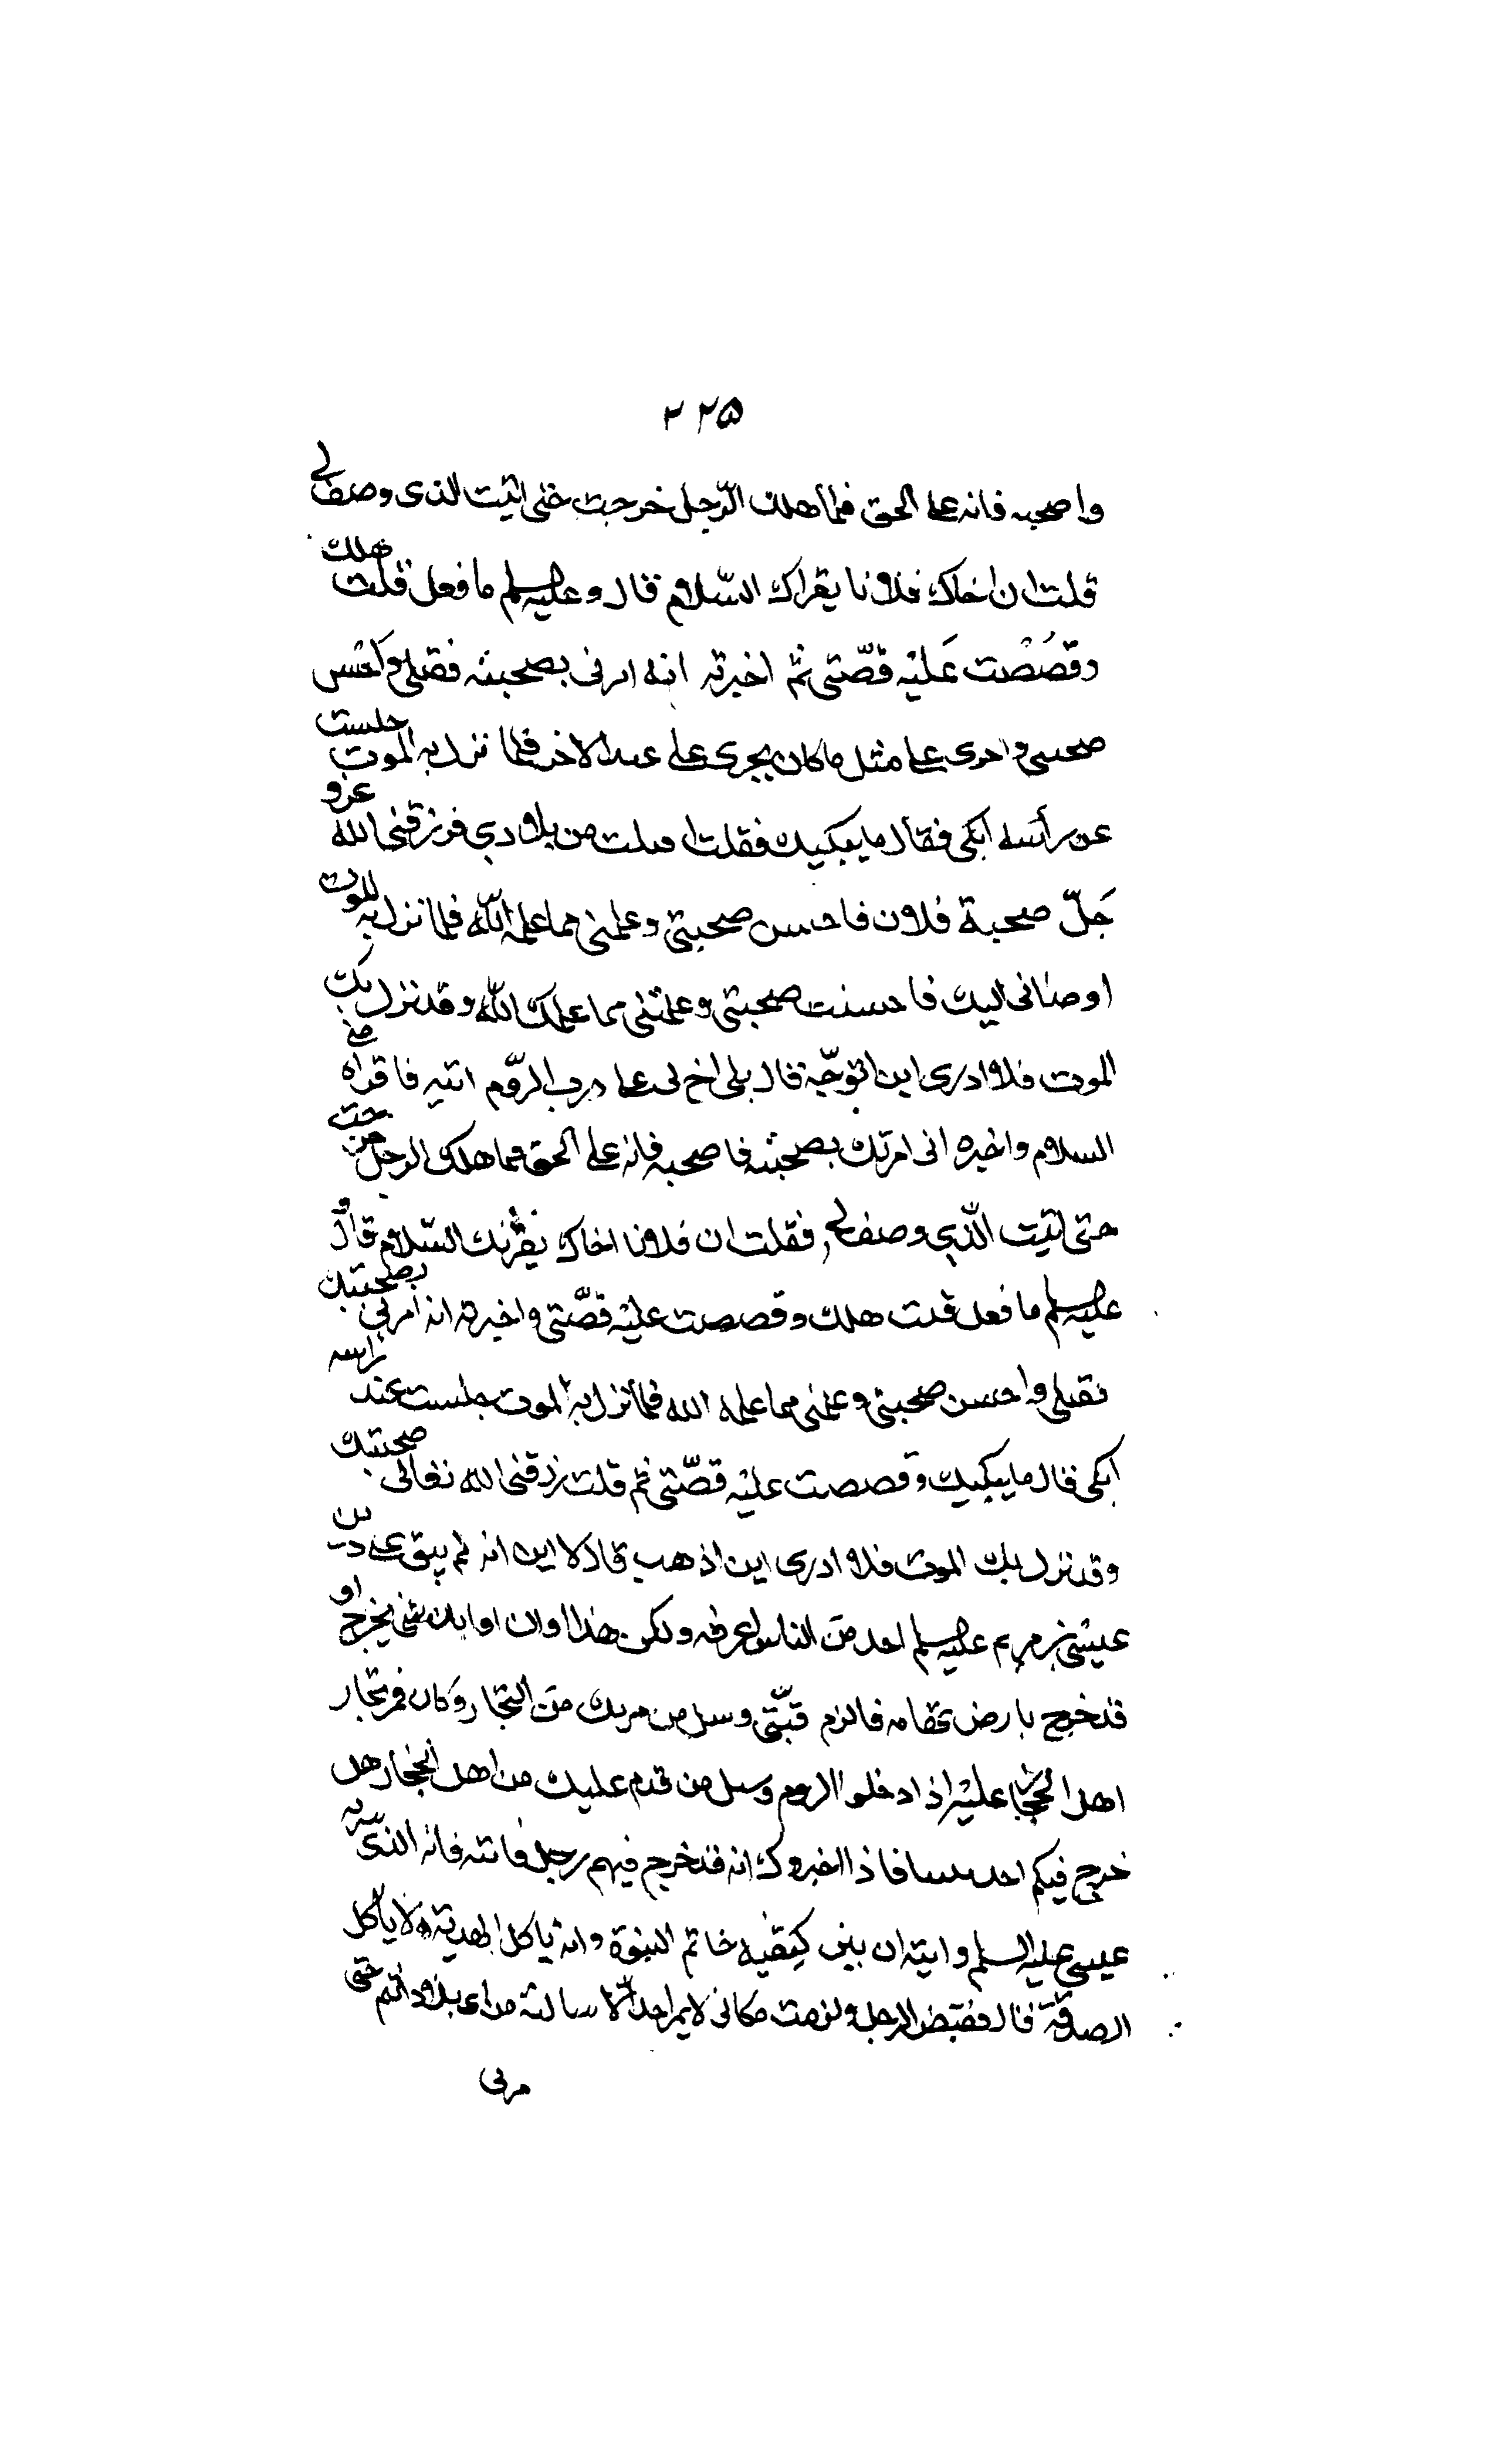 ٢٢٥
واصحبه فانه على الحق فلما هلك الرّجل خرجت حتى اتيت الذى وصف لى
قلت ان اخاك فلانا يقراك السّلام قال وعليه السلم ما فعل قلت هلك
وقصصت عَليْه قصّتى ثم اخبرته انه امرنى بصحبته فقبلنى واحسن
صحبتى واجرى على مثل ما كان يجرى على عند الاخر فلما نزل به الموت جلست
عند رأسه ابكى فقال ما يبكيك فقلت اقبلت من بلادي فرزقنى الله عز و
جَلّ صحبة فلان فاحسن صحبتى وعلمنى مما علمه اللّه فلما نزل به الموت
اوصانى اليك فاحسنت صحبتى وعلمتنى مما علمك اللّه وقد نزل بك
الموت فلا ادرى اين اتوجّه قال بلى اخ لى على درب الرّوم ائتيه فاقراه منى
السلام واخبره انى امرتك بصحبته فاصحبه فانه على الحق فما هلك الرجل خرجت
حتى اتيت الّذي وصف لى فقلت ان فلانا اخاك يقرئك السّلام قال و
عليه السلم ما فعل قلت هلك وقصصت عليْه قصّتى واخبرته انه امرنى بصحبتك
فقبلنى واحسن صحبتى وعلمنى مما علمه الله فلما نزل به الموت جلست عند راسه
ابكى فقال ما يبكيك وقصصت عليْه قصّتى ثم قلت رزقنى الله تعالى صحبتك
وقد نزل بك الموت فلا ادرى اين اذهب قال لا اين انه لم يبق على دين
عيسى بن مريم عليه السلم احد من الناس اعرفه ولكن هذا اوان يخرج او
قد خرج بارض تهامه فالزم قبّتى وسل من مر بك من التجار وكان ممر تجار
اهل الحجاز عليْه اذا دخلوا الروم وسل من قدم عليك من اهل الحجاز هل
خرج فيكم احد فاذا اخبروك انه قد خرج فيهم رجل فائته فانه الذى بشر به
عيسى عليه السلم وايته ان بين كتفيه خاتم النبوة وانه ياكل الهدية ولا ياكل
الصدقة قال فقبض الرجل ولزمت مكانى لا يمر احد الا سالته من اى بلاد انتم حتى
مر بى